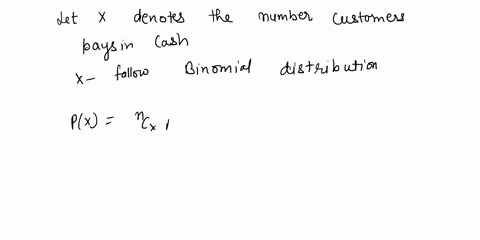 Let X denotes the number customers
pays in cash
X - follow Binomial distribution
P(x) = ⁿCₓ